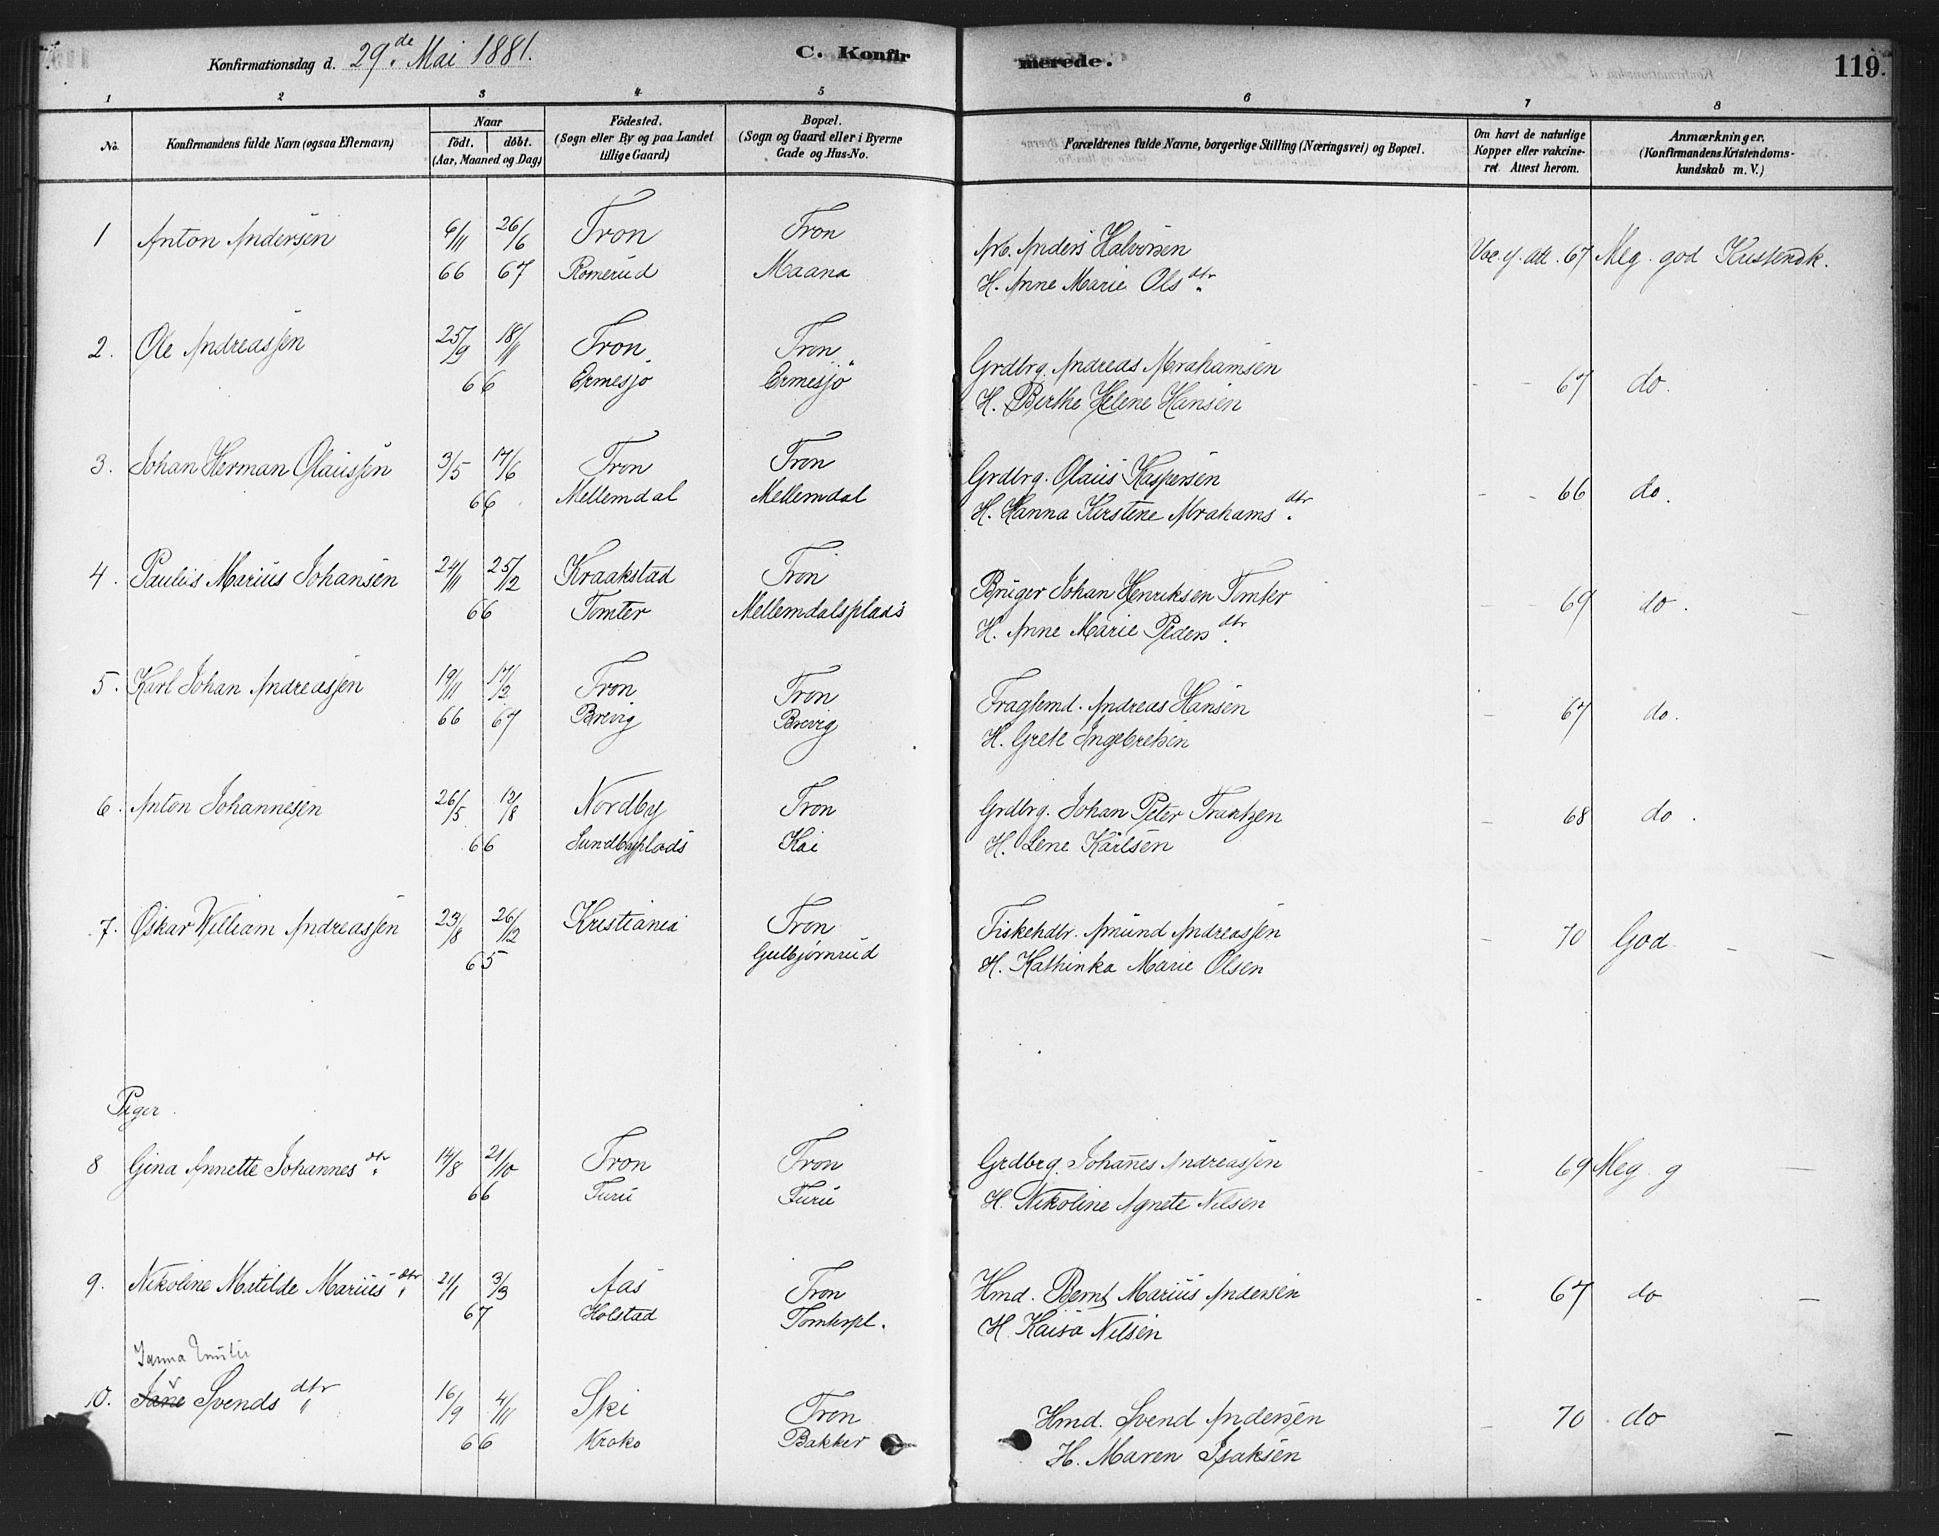 Konfirmationsdag d. 29de Mai 1881.
C. Konfirmerede.
119.
1 2 3 4 5 6 7 8
No.
Konfirmandens fulde Navn (ogsaa Efternavn)
Naar
födt. döbt.
(Aar, Maaned og Dag)
Födested.
(Sogn eller By og paa Landet
tillige Gaard)
Bopæl.
(Sogn og Gaard eller i Byerne
Gade og Hus-No.
Forældrenes fulde Navne, borgerlige Stilling (Næringsvei) og Bopæl.
Om havt de naturlige
Kopper eller vakcine-
ret. Attest herom.
Anmærkninger.
(Konfirmandens Kristendoms-
kundskab m. V.)
1 Anton Andersen 6/11 26/6 Tron Tron Arb. Anders Halvorsen Vac. f. att. 67 Meg. god Kristendk.
66 67 Romerud Maana H. Anne Marie Olsdtr.
2. Ole Andreassen 25/9 18/11 Tron Tron Grdbrg. Andreas Abrahamsen - - 67 do.
66 Ermesjö Ermesjö H. Berthe Helene Hansen
3. Johan Herman Olaussen 3/5 17/6 Tron Tron Grdbrg. Olaus Kaspersen - - 66 do.
66 Mellemdal Mellemdal H. Hanna Kirstene Abrahamsdtr.
4. Paulus Marius Johansen 24/11 25/12 Kraakstad Tron Bruger Johan Henriksen Tomter - - 69 do.
66 Tomter Mellemdalsplads H. Anne Marie Pedersdtr.
5. Karl Johan Andreassen 19/11 17/2 Tron Tron Fragtemd. Andreas Hansen - 67 do.
66 67 Brevig Brevig H. Grete Ingebretsen
6. Anton Johannesen 26/5 12/8 Nordby Tron Grdbrg. Johan Peter Frantzen - 68 do.
66 Sundbyplads Kai H. Lene Karlsen
7. Oskar William Andreassen 23/8 26/12 Kristiania Tron Fiskehdlr. Amund Andreassen - 70 God -
65 Gulbjørnrud H. Kathinka Marie Olsen
Piger.
8 Gina Annette Johannesdtr. 14/8 21/10 Tron Tron Grdbrg. Johañes Andreassen - 69 Meg. g
66 Furu Furu H. Nikoline Agnete Nilsen
9. Nikoline Matilde Mariusdtr. 21/1 3/3 Aas Tron Hmd. Bernt Marius Andersen - 67 do
67 Holstad Tomterpl. H. Kaisa Nilsen
Janna Emilie
10. Jane Svendsdtr. 16/9 4/11 Ski Tron Hmd. Svend Andersen - 70 do
66 Kroko Bakker H. Maren Isaksen